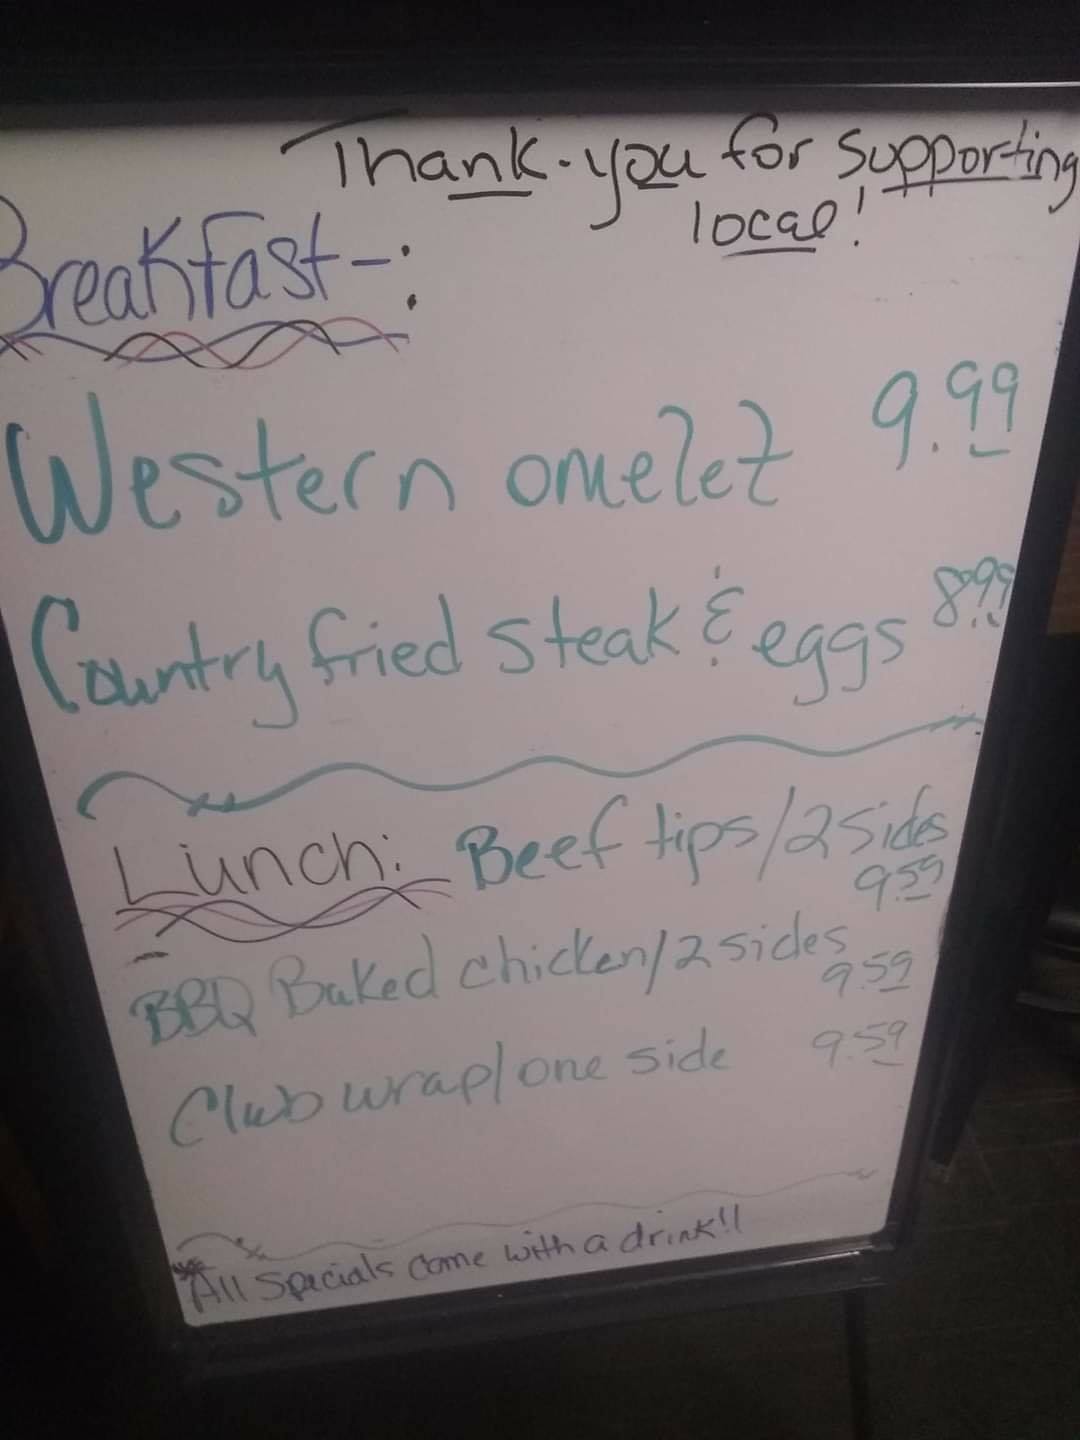 Thank-you for supporting
local!
Breakfast-:
Western omelet 9.99
Country fried steak & eggs 8.99
Lunch: Beef tips/2 sides
9.59
BBQ Baked chicken/2 sides
9.59
Club wrap/one side 9.59
*All specials come with a drink!!